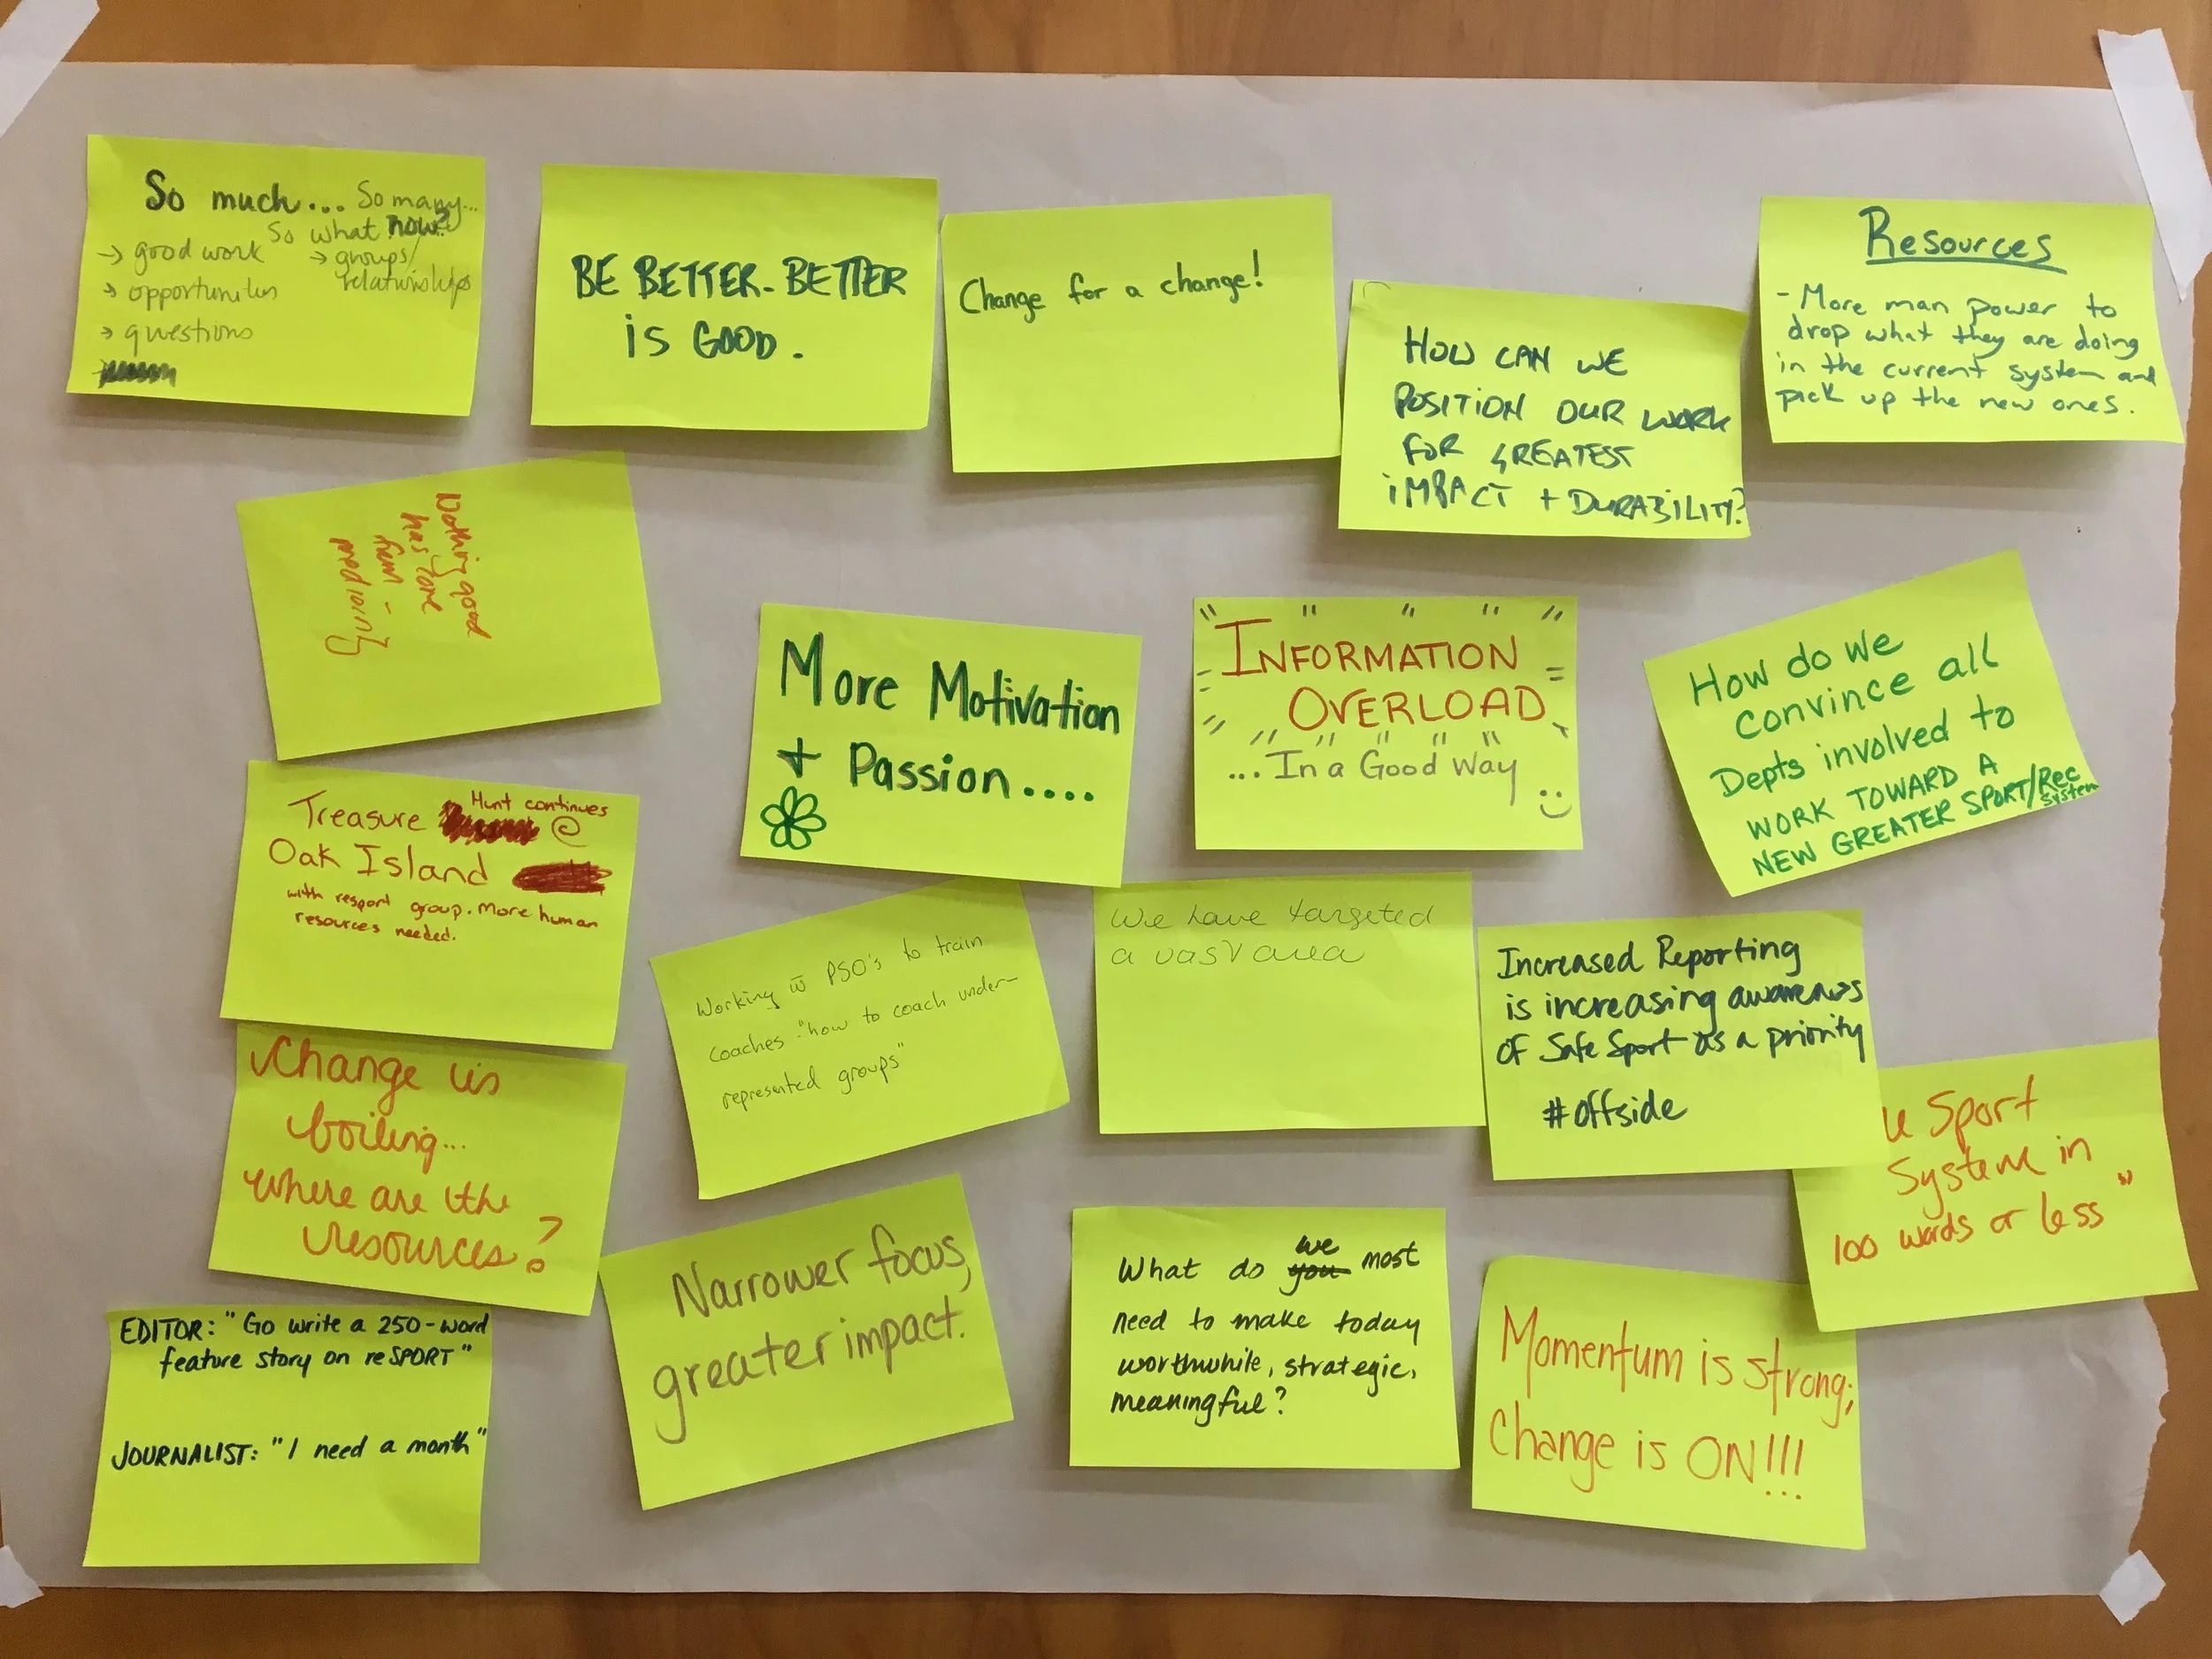 So much... So many...
So what now?
→ good work
→ opportunities
→ questions
→ groups/
relationships
BE BETTER - BETTER
is GOOD.
Change for a change!
HOW CAN WE
POSITION OUR WORK
FOR GREATEST
IMPACT + DURABILITY?
Resources
- More man power to
drop what they are doing
in the current system and
pick up the new ones.
Nothing good
has come
from -
mediocrity
More Motivation
+ Passion....
INFORMATION
OVERLOAD
... In a Good Way
How do we
convince all
Depts involved to
WORK TOWARD A
NEW GREATER SPORT/Rec
System
Treasure Hunt continues
@
Oak Island
with resport group. More human
resources needed.
Working w̄ PSO's to train
coaches "how to coach under-
represented groups"
We have targeted
a vast area
Increased Reporting
is increasing awareness
of Safe Sport as a priority
#offside
Change is
boiling...
where are the
resources?
Sport
System in
100 words or less"
Narrower focus,
greater impact.
What do you we most
need to make today
worthwhile, strategic,
meaningful?
Momentum is strong;
Change is ON!!!
EDITOR: "Go write a 250-word
feature story on reSPORT"
JOURNALIST: "I need a month"